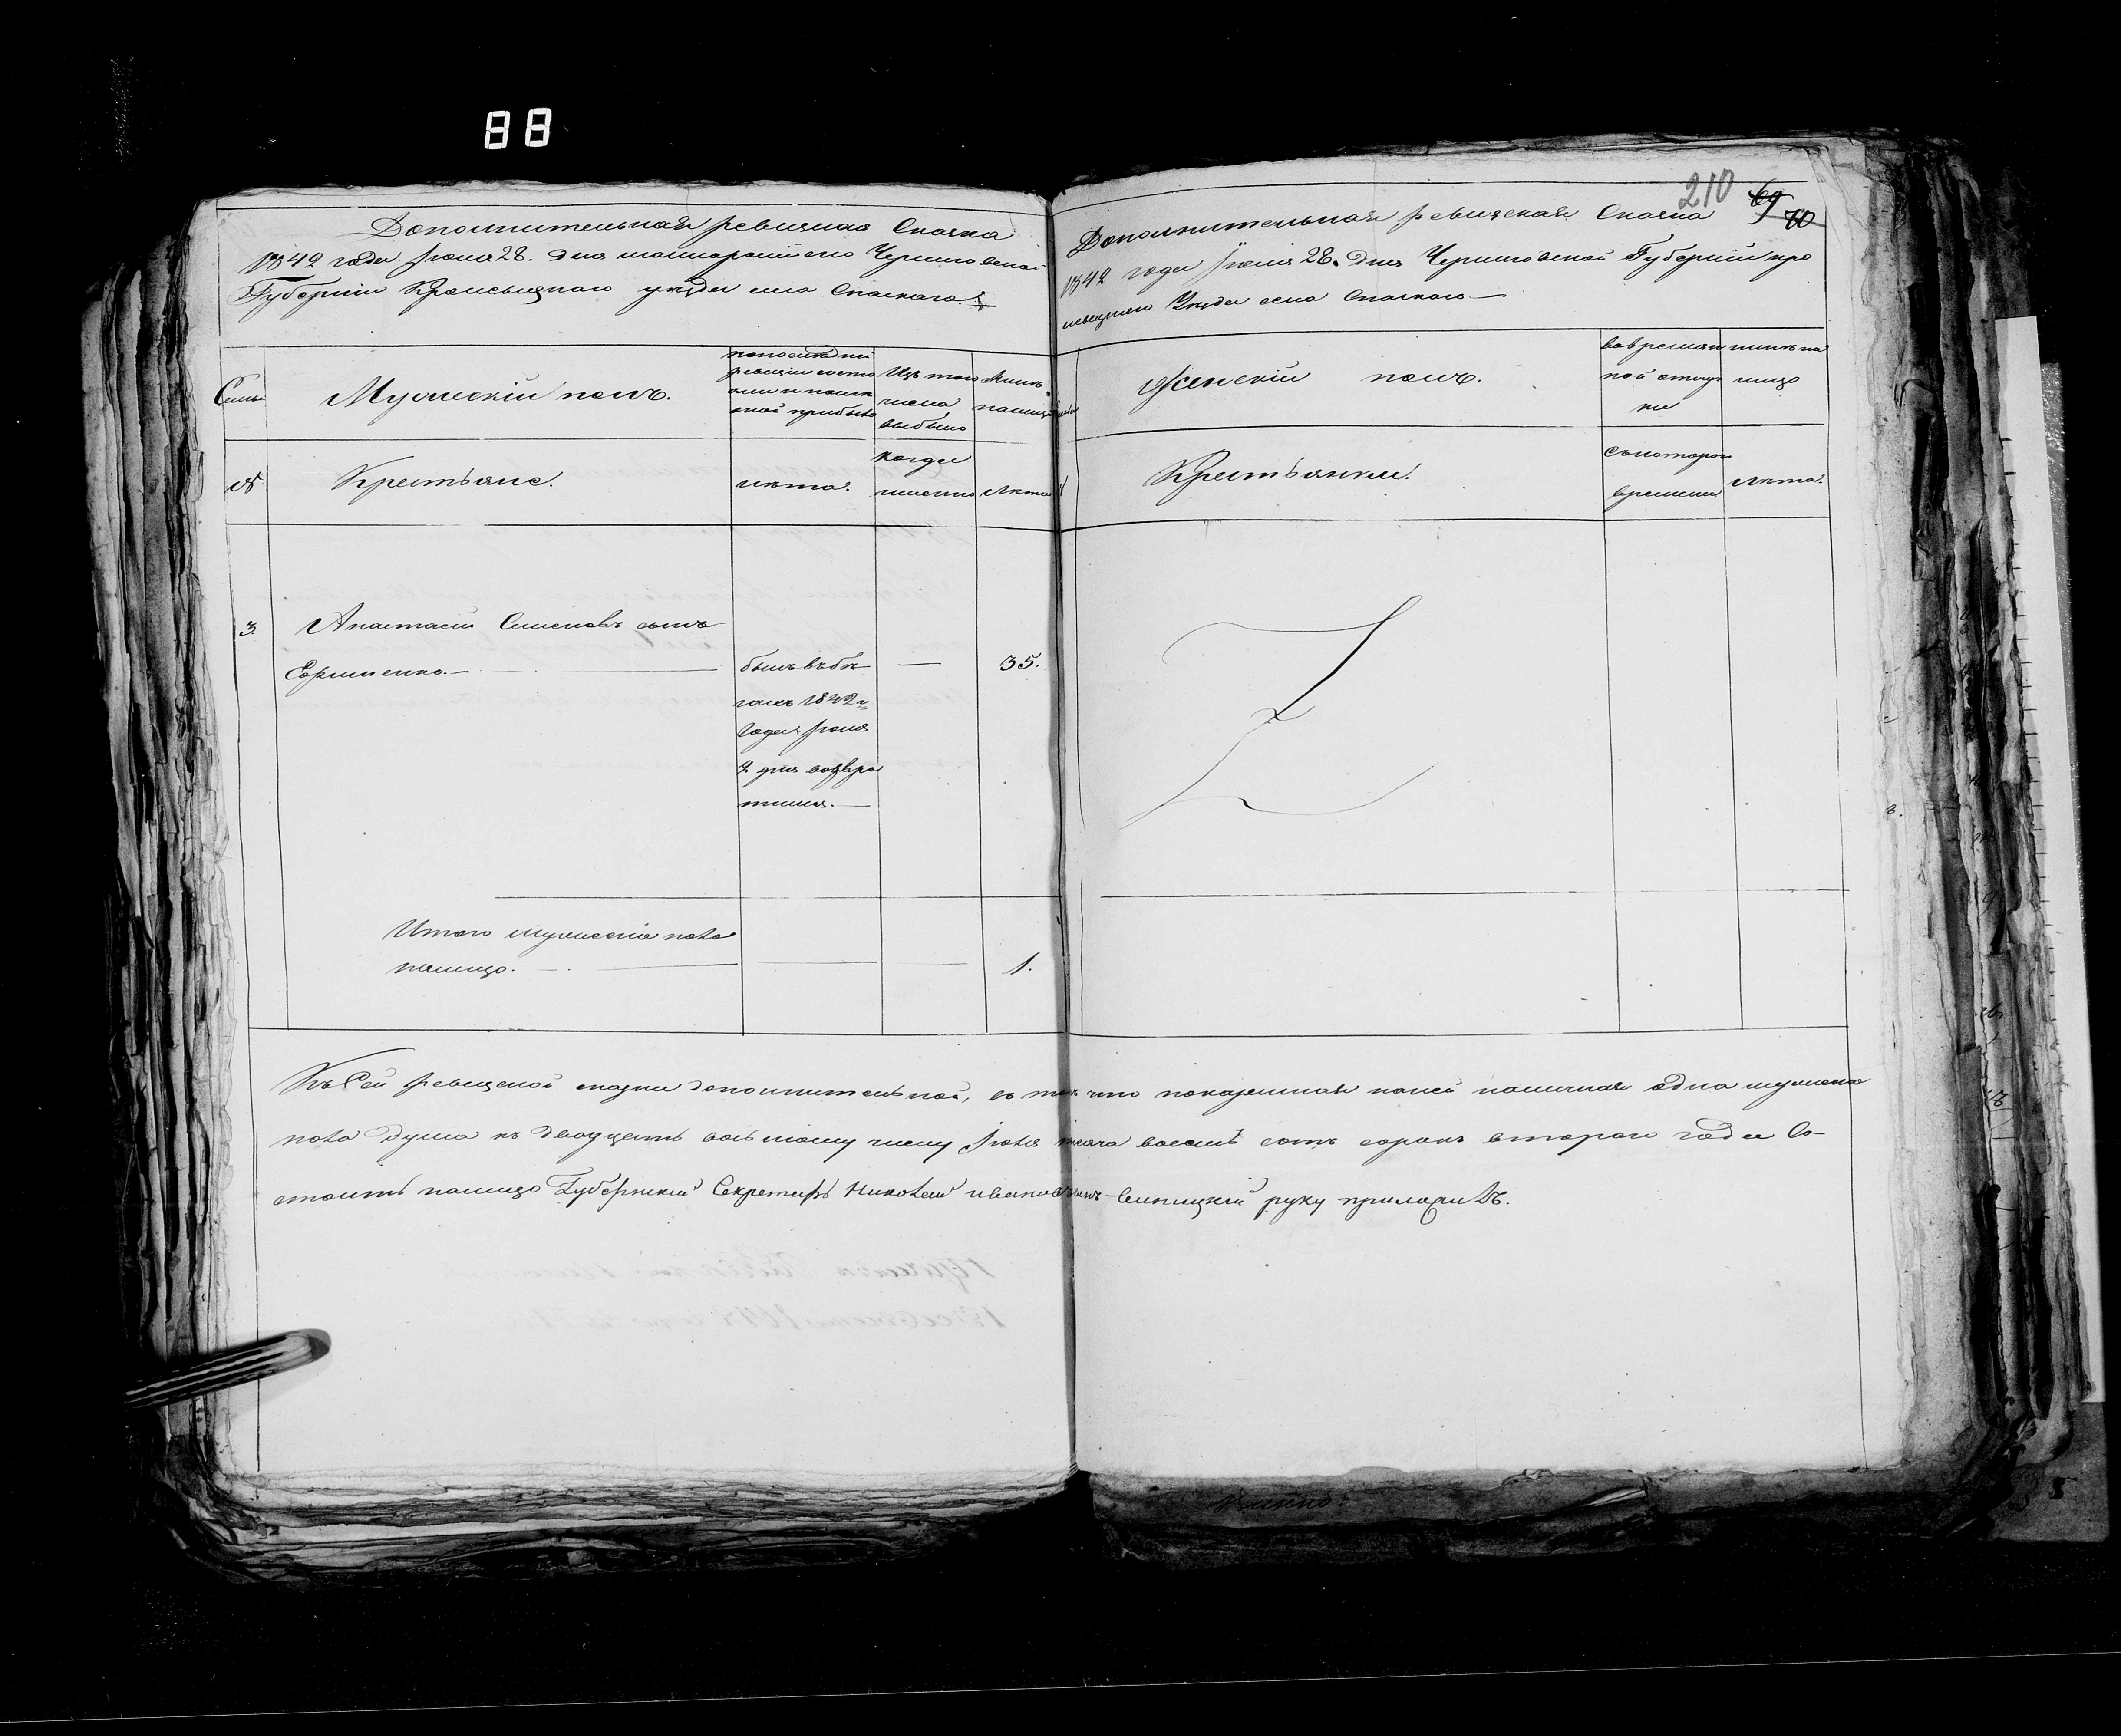 88
210 69 70
Дополнительная ревизкая Сказка
1842 года Июня 28. дня Черниговской
Губернии Кролевецкаго уезда села Спаскаго
Семьи
Мужескій полъ.
по последней
ревизіи состо
яло и после
оной прибыло
Изъ того
числа
выбыло
Ныне
налицо
№
Крестьяне.
лета.
когда
именно
лета
3.
Анастасій Семеновъ сынъ
Ефименко.
былъ въ бе
гахъ 1842 г
года Июня
дня возвра
тился.
—
35.
Итого мужеска пола
налицо.
1.
Дополнительная ревизская Сказка
1842 года Июня 28. дня Черниговской Губерніи Кро
левецкаго Уезда села Спаскаго
Женскій полъ.
во времян
ной отлуч
ке
ныне на
лицо
Крестьянки.
съ котораго
времени
Лета.
Къ Сей ревизской сказки дополнительной, въ томъ что показанная по ней наличная одна мужеска
пола душа къ двадцать восьмому числу Июня тысяча восемь сотъ сорокъ втораго года Со-
стоитъ налицо Губернский Секретарь Николай Ивановъ сынъ руку приложилъ.